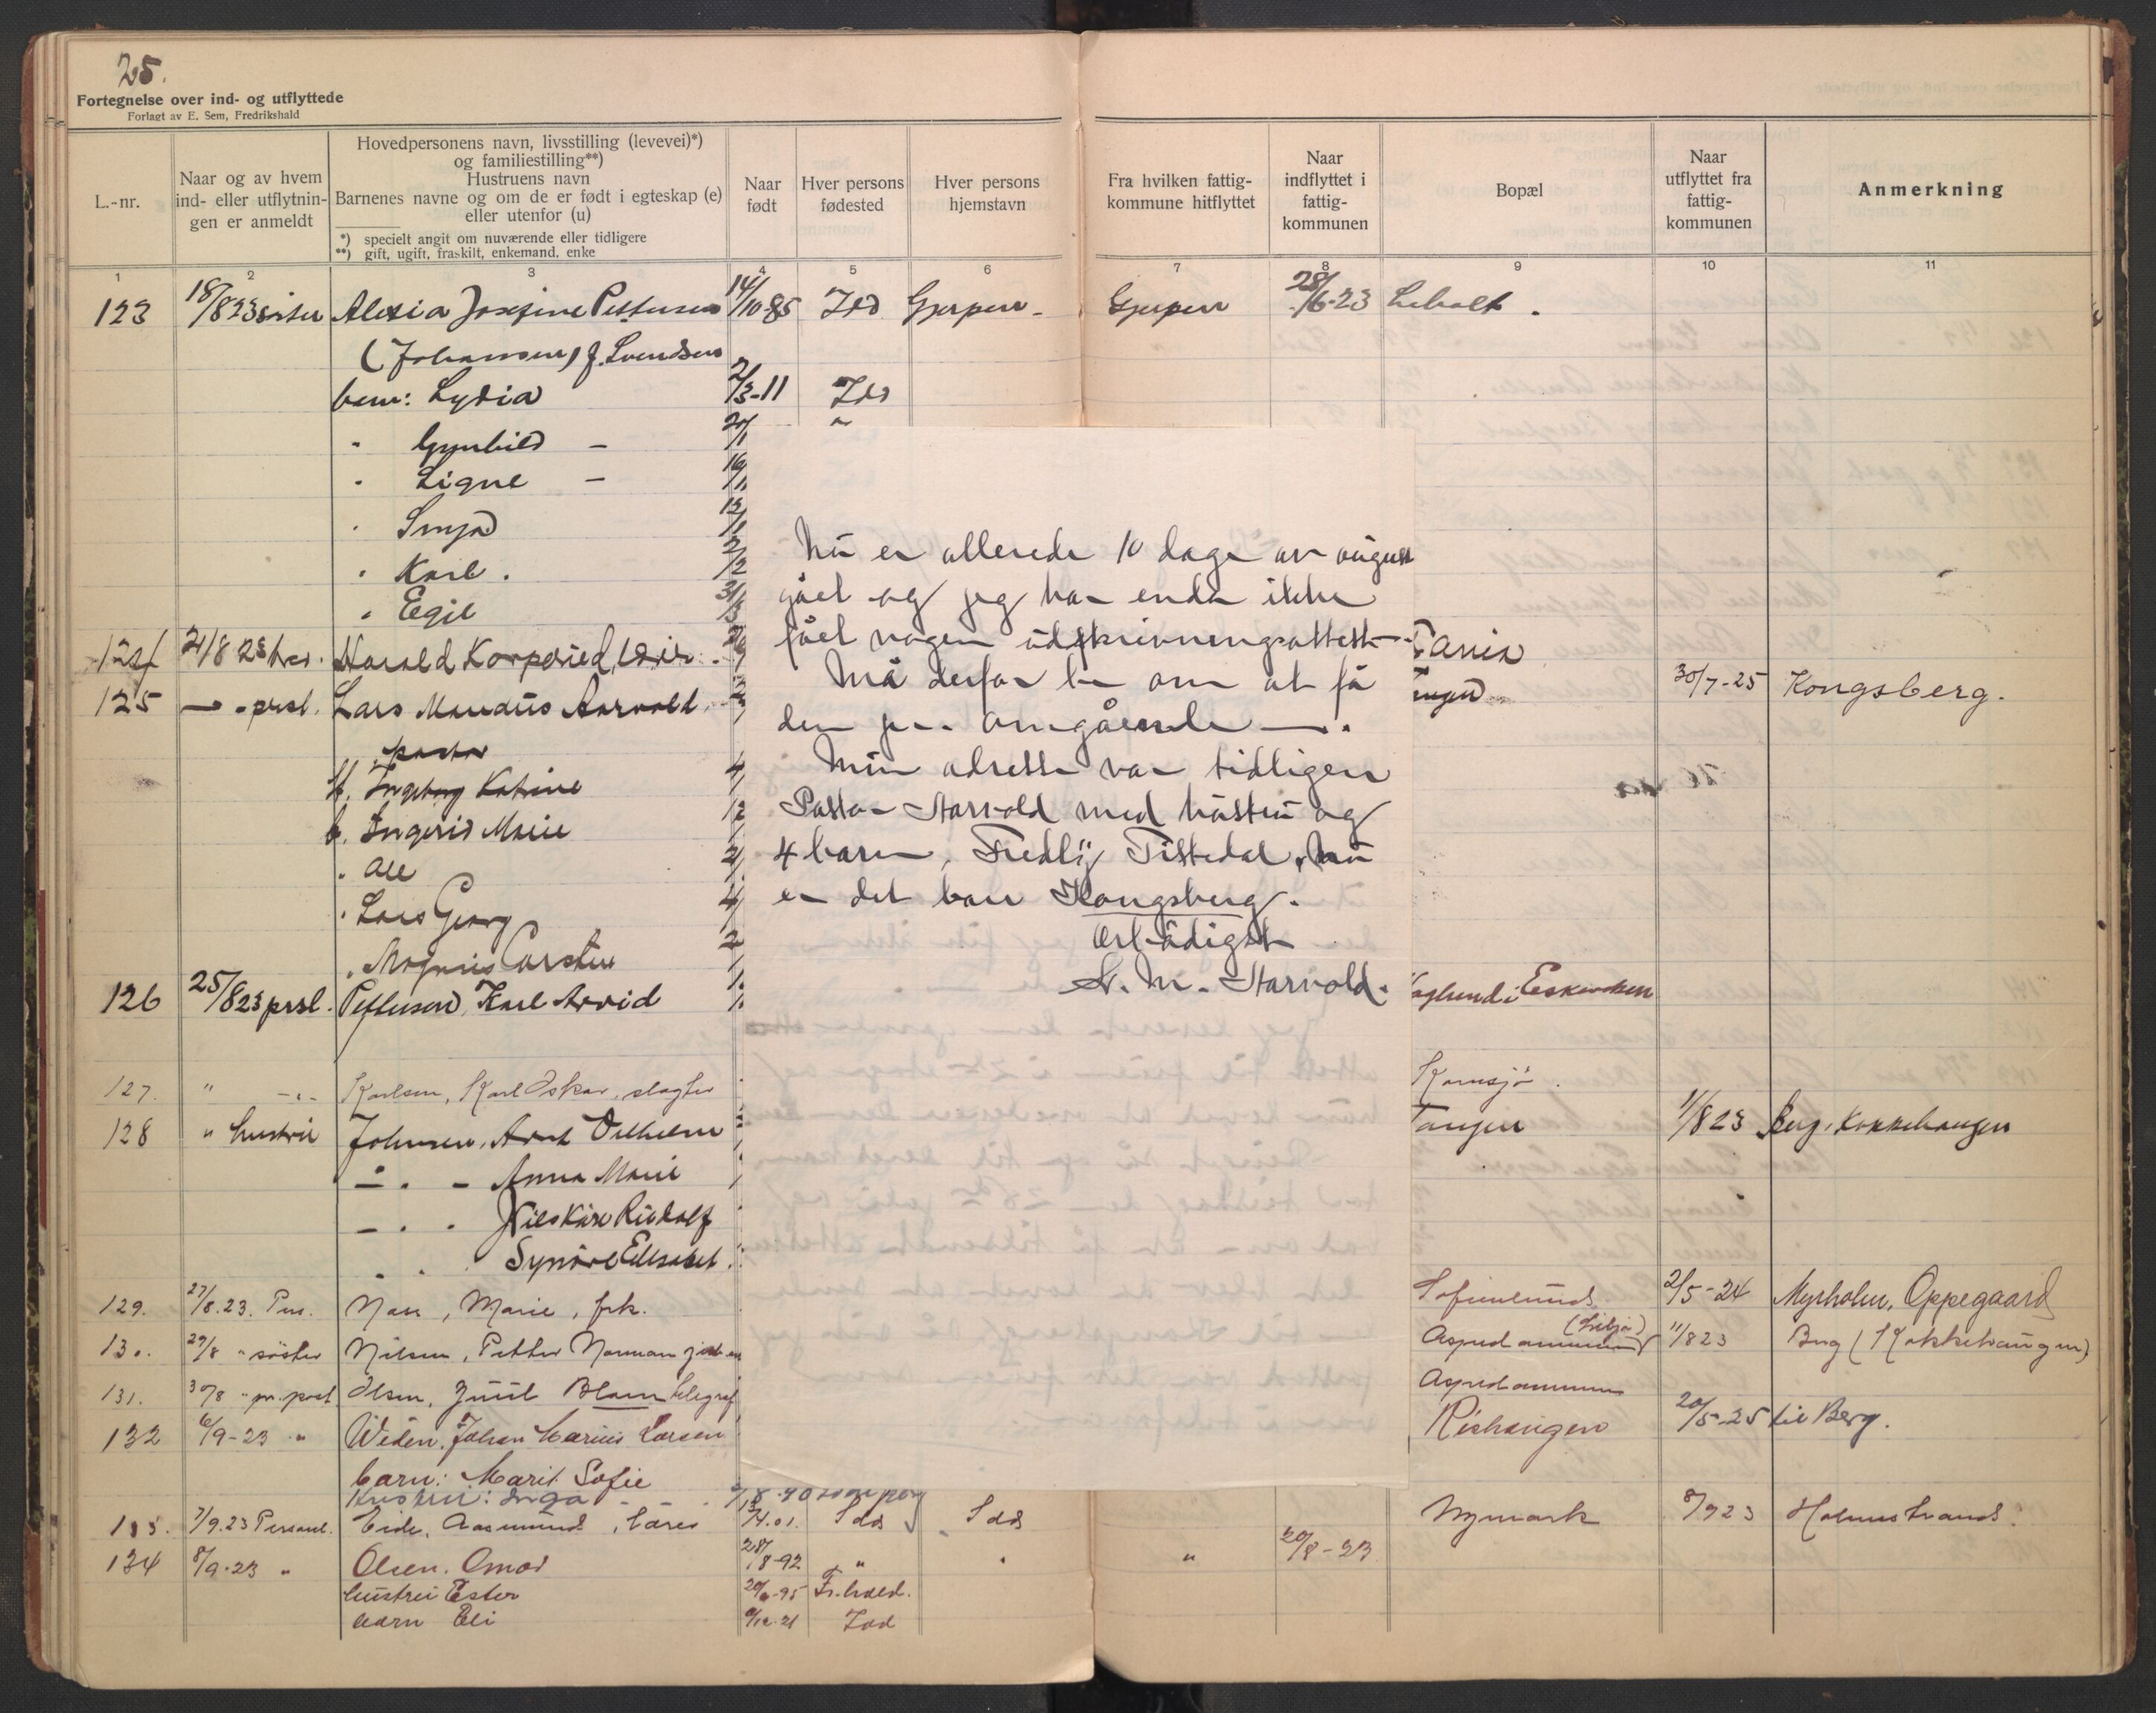 25.
Fortegnelse over ind- og utflyttede
Forlagt av E. Sem, Fredrikshald
L.-nr.
Naar og av hvem
ind- eller utflytnin-
gen er anmeldt
Hovedpersonens navn, livsstilling (levevei)*)
og familiestilling**)
Hustruens navn
Barnenes navne og om de er født i egteskap (e)
eller utenfor (u)
*) specielt angit om nuværende eller tidligere
**) gift, ugift, fraskilt, enkemand, enke
Naar
født
Hver persons
fødested
Hver persons
hjemstavn
Fra hvilken fattig-
kommune hitflyttet
Naar
indflyttet i
fattig-
kommunen
Bopæl
Naar
utflyttet fra
fattig-
kommunen
Anmerkning
1 2 3 4 5 6 7 8 9 10 11
123 18/8 23 søster Alexia Josefine Pettersen 14/10-85 Idd Gjerpen - Gjerpen 28/6-23 Liholt.
(Johansen) f. Svendsen
barn: Lydia 2/3-11 Idd
" Gunhild -
" Signe -
"
" Karl.
" Egil
124 21/8 23 Harald
125 - " - prsl. Lars Marius Aarvold, 30/7-25 Kongsberg.
pastor
H. Ingeborg Katrine
b. Ingerid Marie
" Ole
" Lars Georg
" Magnus Carsten
126 25/8 23 prsl. Pettersen, Karl Arvid
127. " - " - Karlsen, Karl Oskar, slagter Kornsjø.
128 " hustru Johnsen, Arnt Vilhelm Tangen 11/8 23 Berg, Kokkehaugen
- " - Anna Marie
- " " Nils Kåre Rudolf
" " Synøve Elisabet
129. 27/8.23. Pers. Næss, Marie, frk. Sofienlund 2/5-24 Myrholm, Oppegaard
130. 29/8 " søster Nilsen, Petter Norman Aspedammen 11/8 23 Berg (Kokkehaugen)
131. 30/8 " pr. post Olsen, Juul Blom telegraf Aspedammen
132 6/9-23 " Widen, Johan Marius Larsen Rishaugen 20/5-25 til Berg.
barn: Marit Sofie
Hustru: Inga
133. 7/9.23 Personl. Eide, Aasmund, lærer 13/4.01. Idd Idd Nymark 8/9 23 Holmestrand.
134 8/9-23 " Olsen, Omar 28/8-92 " " " 20/8-23
hustru Ester Fr.hald.
barn Eli Idd
Nu er allerede 10 dage av august
gået og jeg har enda ikke
fået nogen utskrivningsattest.
Må derfor be om at få
den pr. omgående.
Min adresse var tidligere
Pastor Aarvold med hustru og
4 barn, Fredly Tistedal, nu
er det bare Kongsberg.
Ærbødigst
L. M. Aarvold.